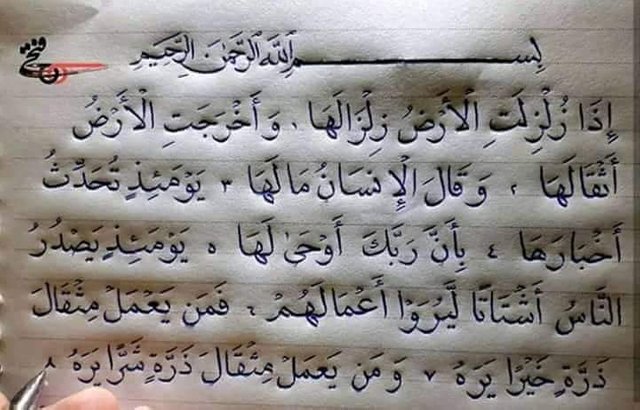 بســــم الله الرحمن الرحيم
إِذَا زُلْزِلَتِ الْأَرْضُ زِلْزَالَهَا ١ وَأَخْرَجَتِ الْأَرْضُ
أَثْقَالَهَا ٢ وَقَالَ الْإِنسَانُ مَا لَهَا ٣ يَوْمَئِذٍ تُحَدِّثُ
أَخْبَارَهَا ٤ بِأَنَّ رَبَّكَ أَوْحَىٰ لَهَا ٥ يَوْمَئِذٍ يَصْدُرُ
النَّاسُ أَشْتَاتًا لِّيُرَوْا أَعْمَالَهُمْ ٦ فَمَن يَعْمَلْ مِثْقَالَ
ذَرَّةٍ خَيْرًا يَرَهُ ٧ وَمَن يَعْمَلْ مِثْقَالَ ذَرَّةٍ شَرًّا يَرَهُ ٨